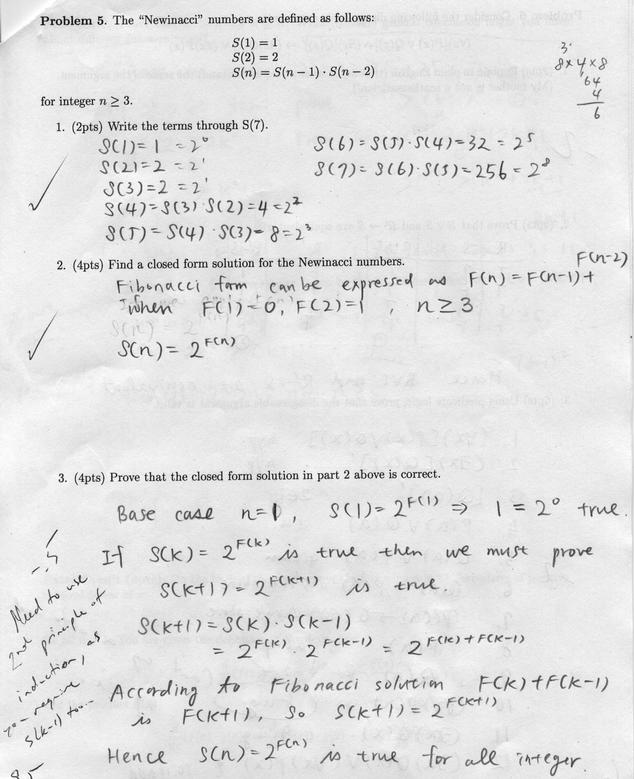 Problem 5. The “Newinacci” numbers are defined as follows:
S(1) = 1
S(2) = 2
S(n) = S(n − 1) · S(n − 2)
3
8×4×8
64
4
6
for integer n ≥ 3.
1. (2pts) Write the terms through S(7).
S(1)= 1 = 2⁰
S(2)=2 = 2¹
S(3)=2 = 2¹
S(4)=S(3)·S(2)=4=2²
S(5)=S(4)·S(3)=8=2³
S(6)=S(5)·S(4)=32=2⁵
S(7)=S(6)·S(5)=256=2⁸
2. (4pts) Find a closed form solution for the Newinacci numbers.
Fibonacci form can be expressed as F(n)=F(n-1)+
F(n-2)
when F(1)=0, F(2)=1, n≥3
S(n)=2^F(n)
3. (4pts) Prove that the closed form solution in part 2 above is correct.
Base case n=1, S(1)=2^F(1) ⇒ 1=2⁰ true.
If S(k)=2^F(k) is true then we must prove
S(k+1)=2^F(k+1) is true.
S(k+1)=S(k)·S(k-1)
=2^F(k)·2^F(k-1)=2^F(k)+F(k-1)
According to Fibonacci solution F(k)+F(k-1)
is F(k+1), so S(k+1)=2^F(k+1)
Hence S(n)=2^F(n) is true for all integer.
Need to use
2nd principle of
induction, as
require
S(k-1) too